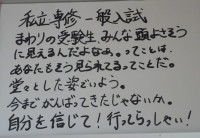 私立専修一般入試
まわりの受験生、みんな頭よさそう
に見えるんだよなぁ。ってことは、
あなたもそう見られてるってことだ。
堂々とした姿でいよう。
今までがんばってきたじゃないか。
自分を信じて！行ってらっしゃい！